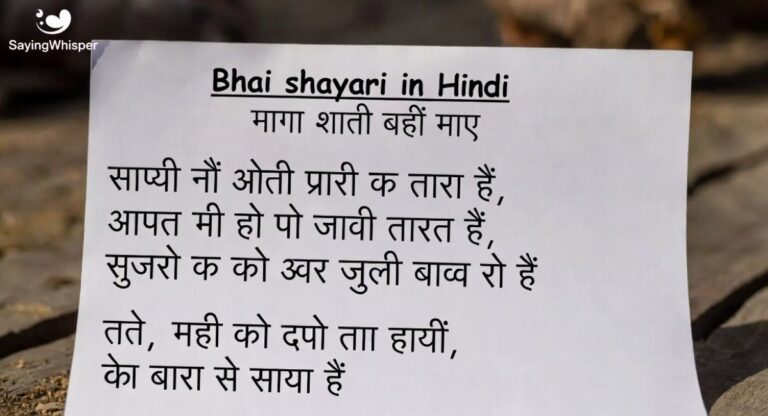 SayingWhisper
Bhai shayari in Hindi
मागा शाती बहीं माए
साप्यी नौं ओती प्रारी क तारा हैं,
आपत मी हो पो जावी तारत हैं,
सुजरो क को उ्वर जुली बाव्व रो हैं
तते, मही को दपो ताा हायीं,
केा बारा से साया हैं